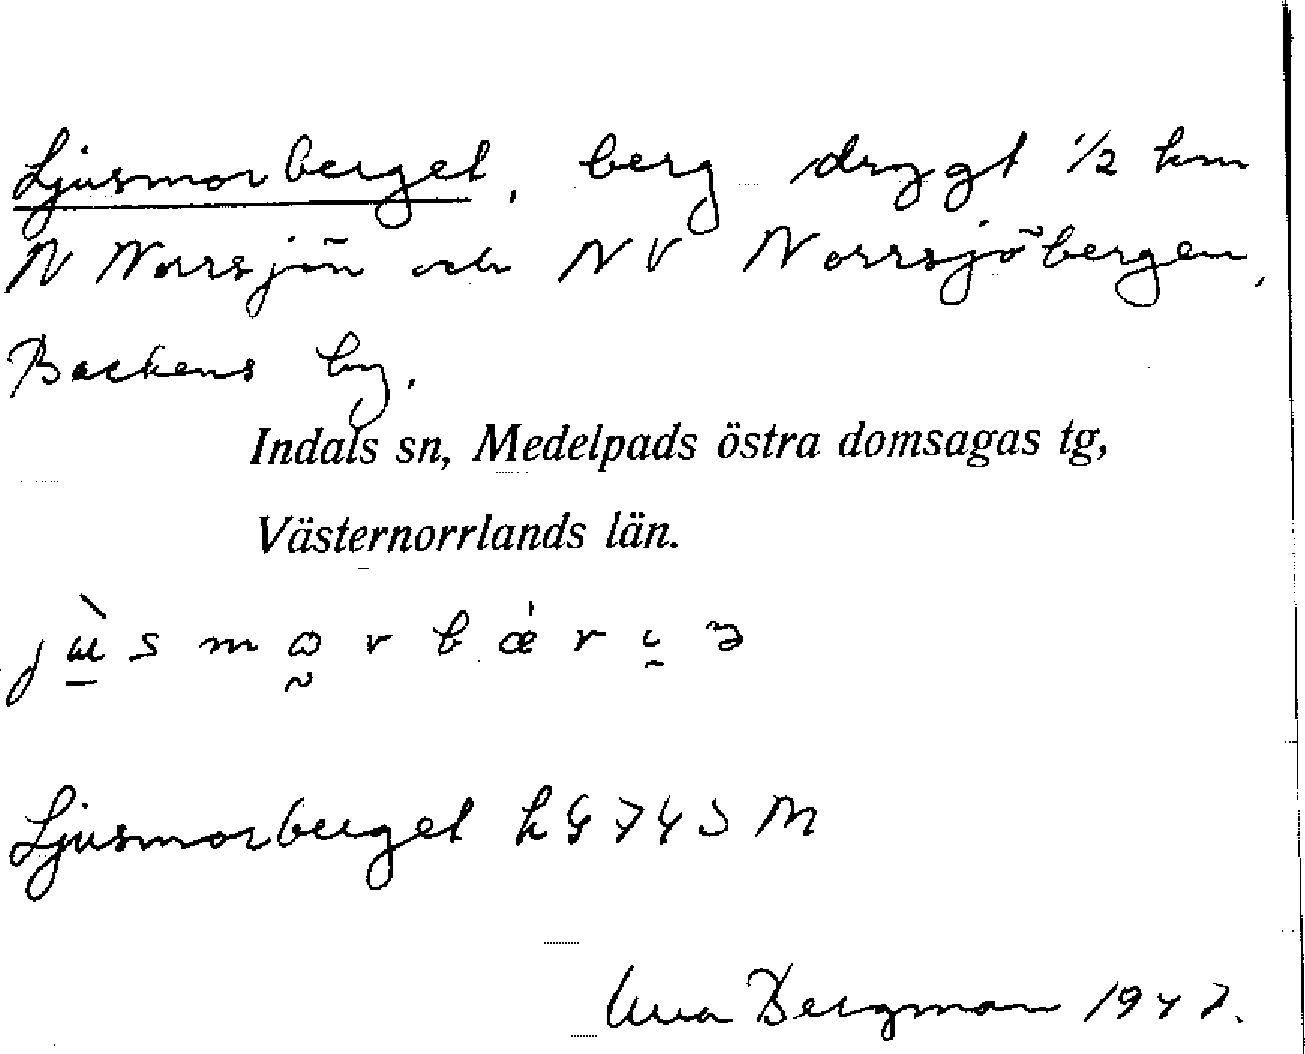 Ljusmorberget, berg drygt 1/2 km
N Norrsjön och NV Norrsjöbergen,
Backens by.
Indals sn, Medelpads östra domsagas tg,
Västernorrlands län.
Ljusmorberget
Bergman 1947.